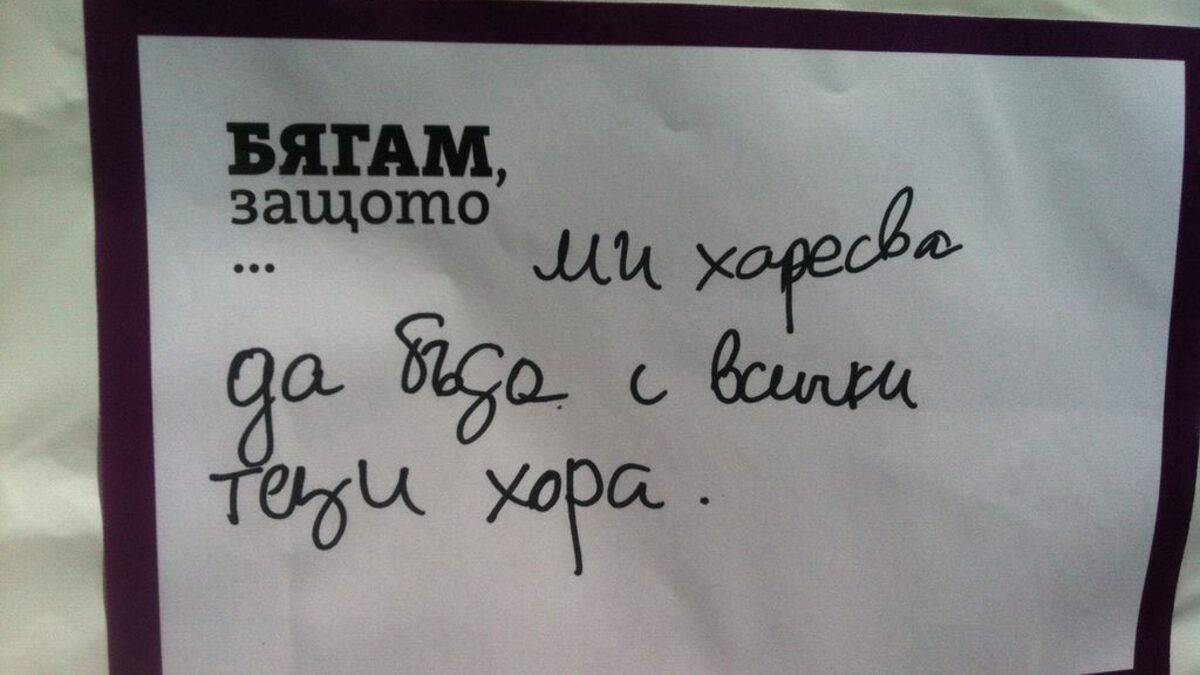 БЯГАМ,
защото
...
ми харесва
да бъда с всички
тези хора.